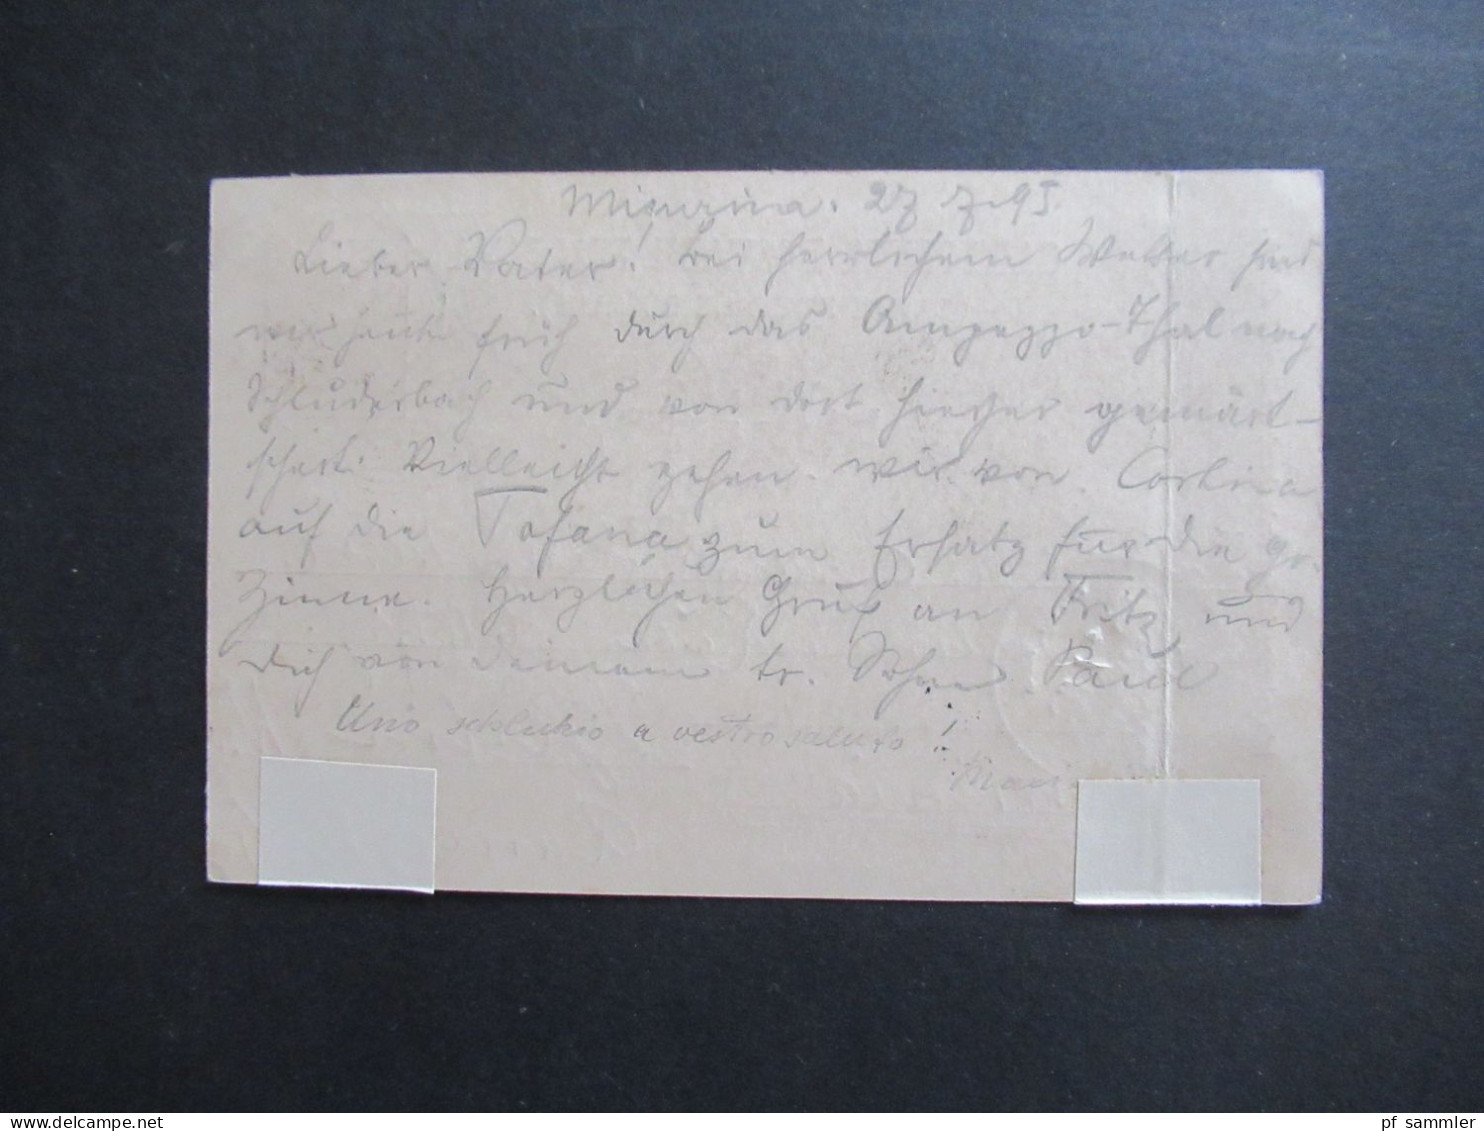 Misurina. 27 7. 95.
Lieber Vater! Bei herrlichem Wetter sind
wir heute früh durch das Ampezzo-Thal nach
Schluderbach und von dort hierher gemart-
schert. Vielleicht gehen wir von Cortina
auf die Tofana zum Ersatz für die gr.
Zinne. Herzlichen Gruß an Fritz und
Dich von Deinem tr. Sohn Paul
Uno a vestro saluto!
pf sammler
delcampe.net